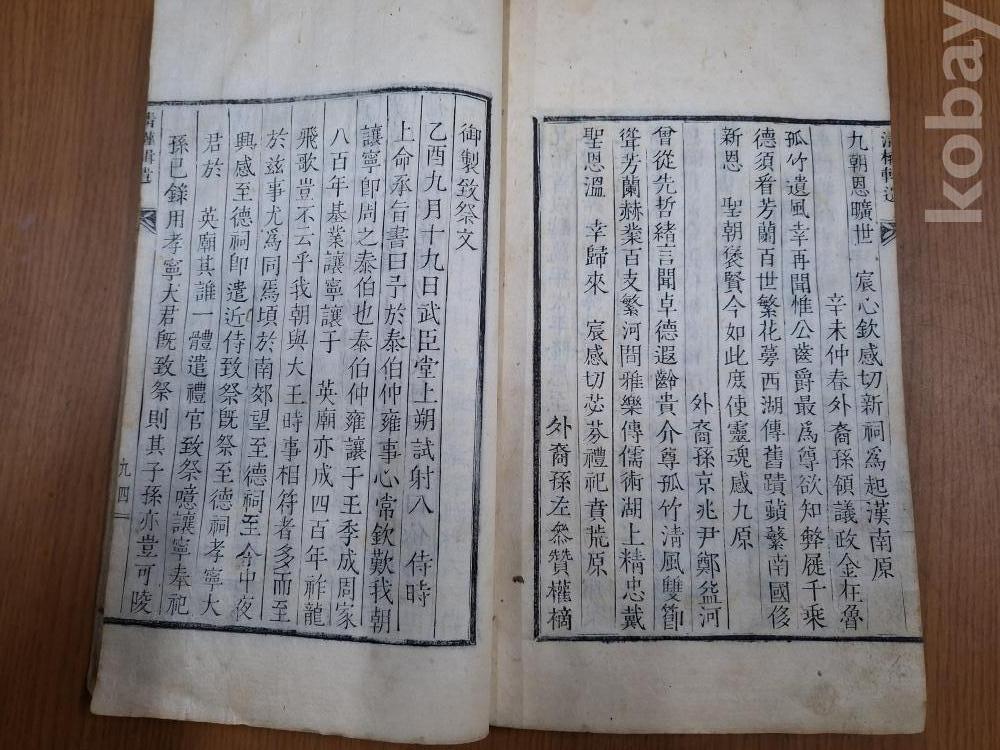 九朝恩曠世 宸心欽感切新祠爲起漢南原
辛未仲春外裔孫領議政金在魯
孤竹遺風幸再聞惟公齒爵最爲尊欲知弊屣千乘
德須看芳蘭百世繁花萼西湖傳舊蹟蘋蘩南國侈
新恩 聖朝褒賢今如此庶使靈魂感九原
外裔孫京兆尹鄭益河
曾從先哲緖言聞卓德遐齡貴介尊孤竹淸風雙節
聳芳蘭赫業百支繁河間雅樂傳儒術湖上精忠戴
聖恩溫 幸歸來 宸感切苾芬禮祀賁荒原
外裔孫左叅贊權𥛚
御製致祭文
乙酉九月十九日武臣堂上朔試射入 侍時
上命承旨書曰予於泰伯仲雍事心常欽歎我朝
讓寧卽周之泰伯也泰伯仲雍讓于王季成周家
八百年基業讓寧讓于 英廟亦成四百年祚龍
飛歌豈不云乎我朝與大王時事相符者多而至
於玆事尤爲同焉頃於南郊望至德祠至今中夜
興感至德祠卽遣近侍致祭旣祭至德祠孝寧大
君於 英廟其誰一體遣禮官致祭噫讓寧奉祀
孫已錄用孝寧大君旣致祭則其子孫亦豈可陵
九四
kobay